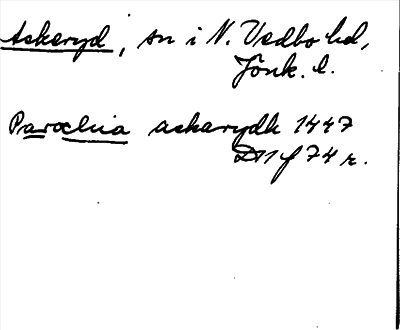 Askeryd, sn i N. Vedbo hd,
Jönk. l.
Parochia askarydh 1447
D 11 f 74 r.